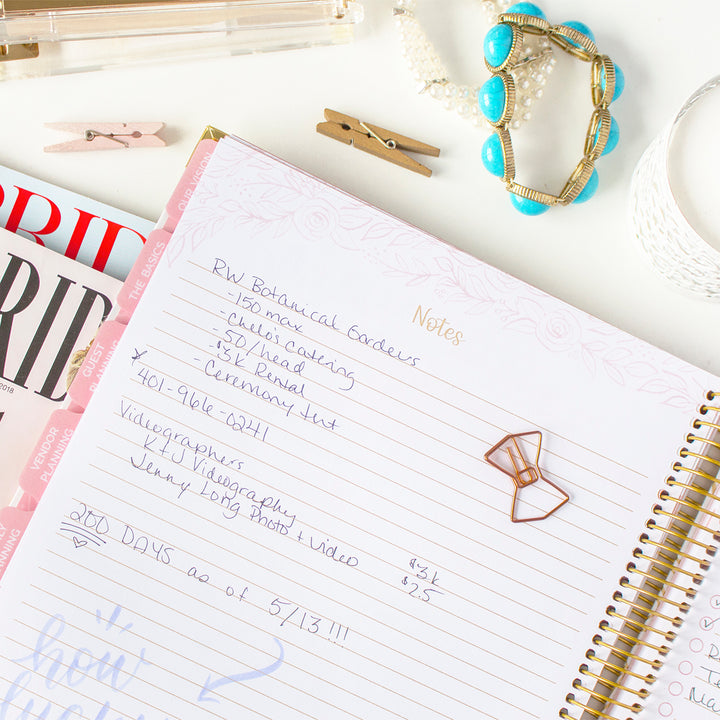 BRID
RID
2018
OUR VISION
THE BASICS
GUEST PLANNING
VENDOR PLANNING
Notes
RW Botanical Gardens
-150 max
-Chelo's catering
-50/head
-$3k Rental
-Ceremony tnt
* 401-966-0241
Videographers
K+J Videography $3k
Jenny Long Photo + video $2.5
200 DAYS as of 5/13!!!
how